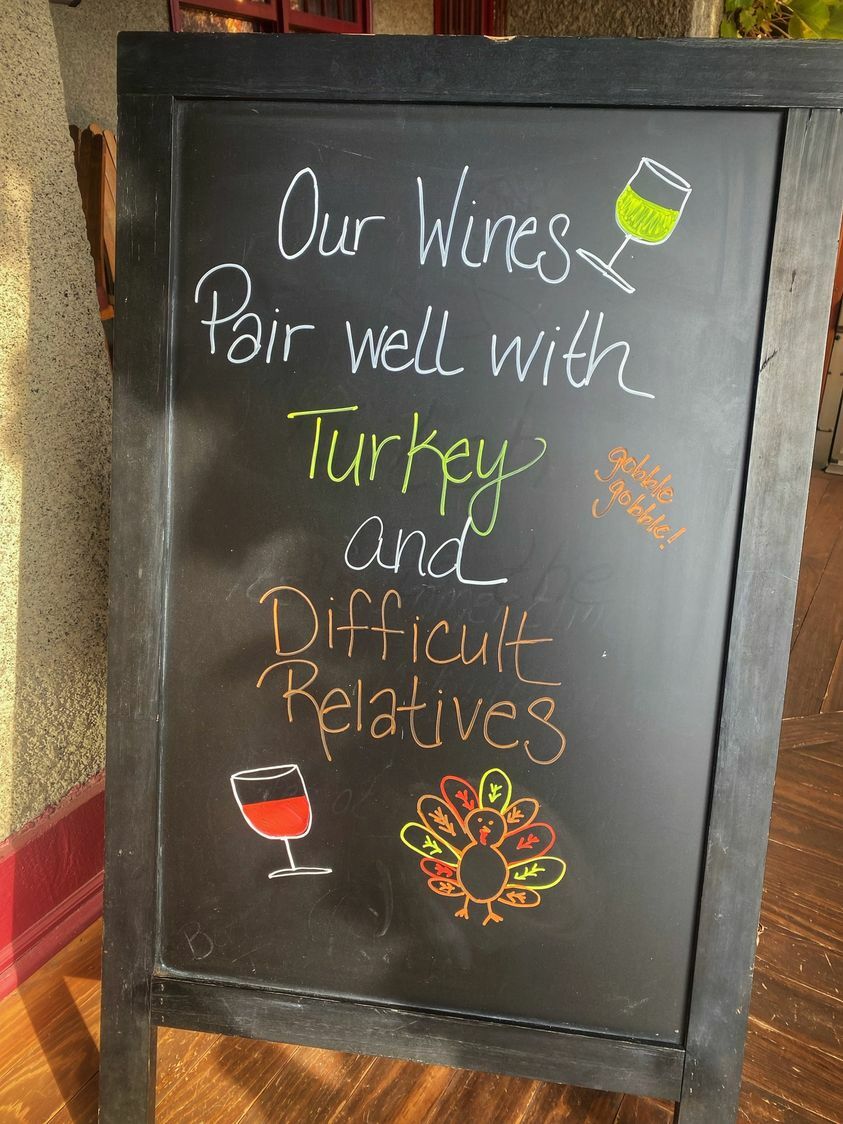 Our Wines
Pair well with
Turkey
gobble
gobble!
and
Difficult
Relatives